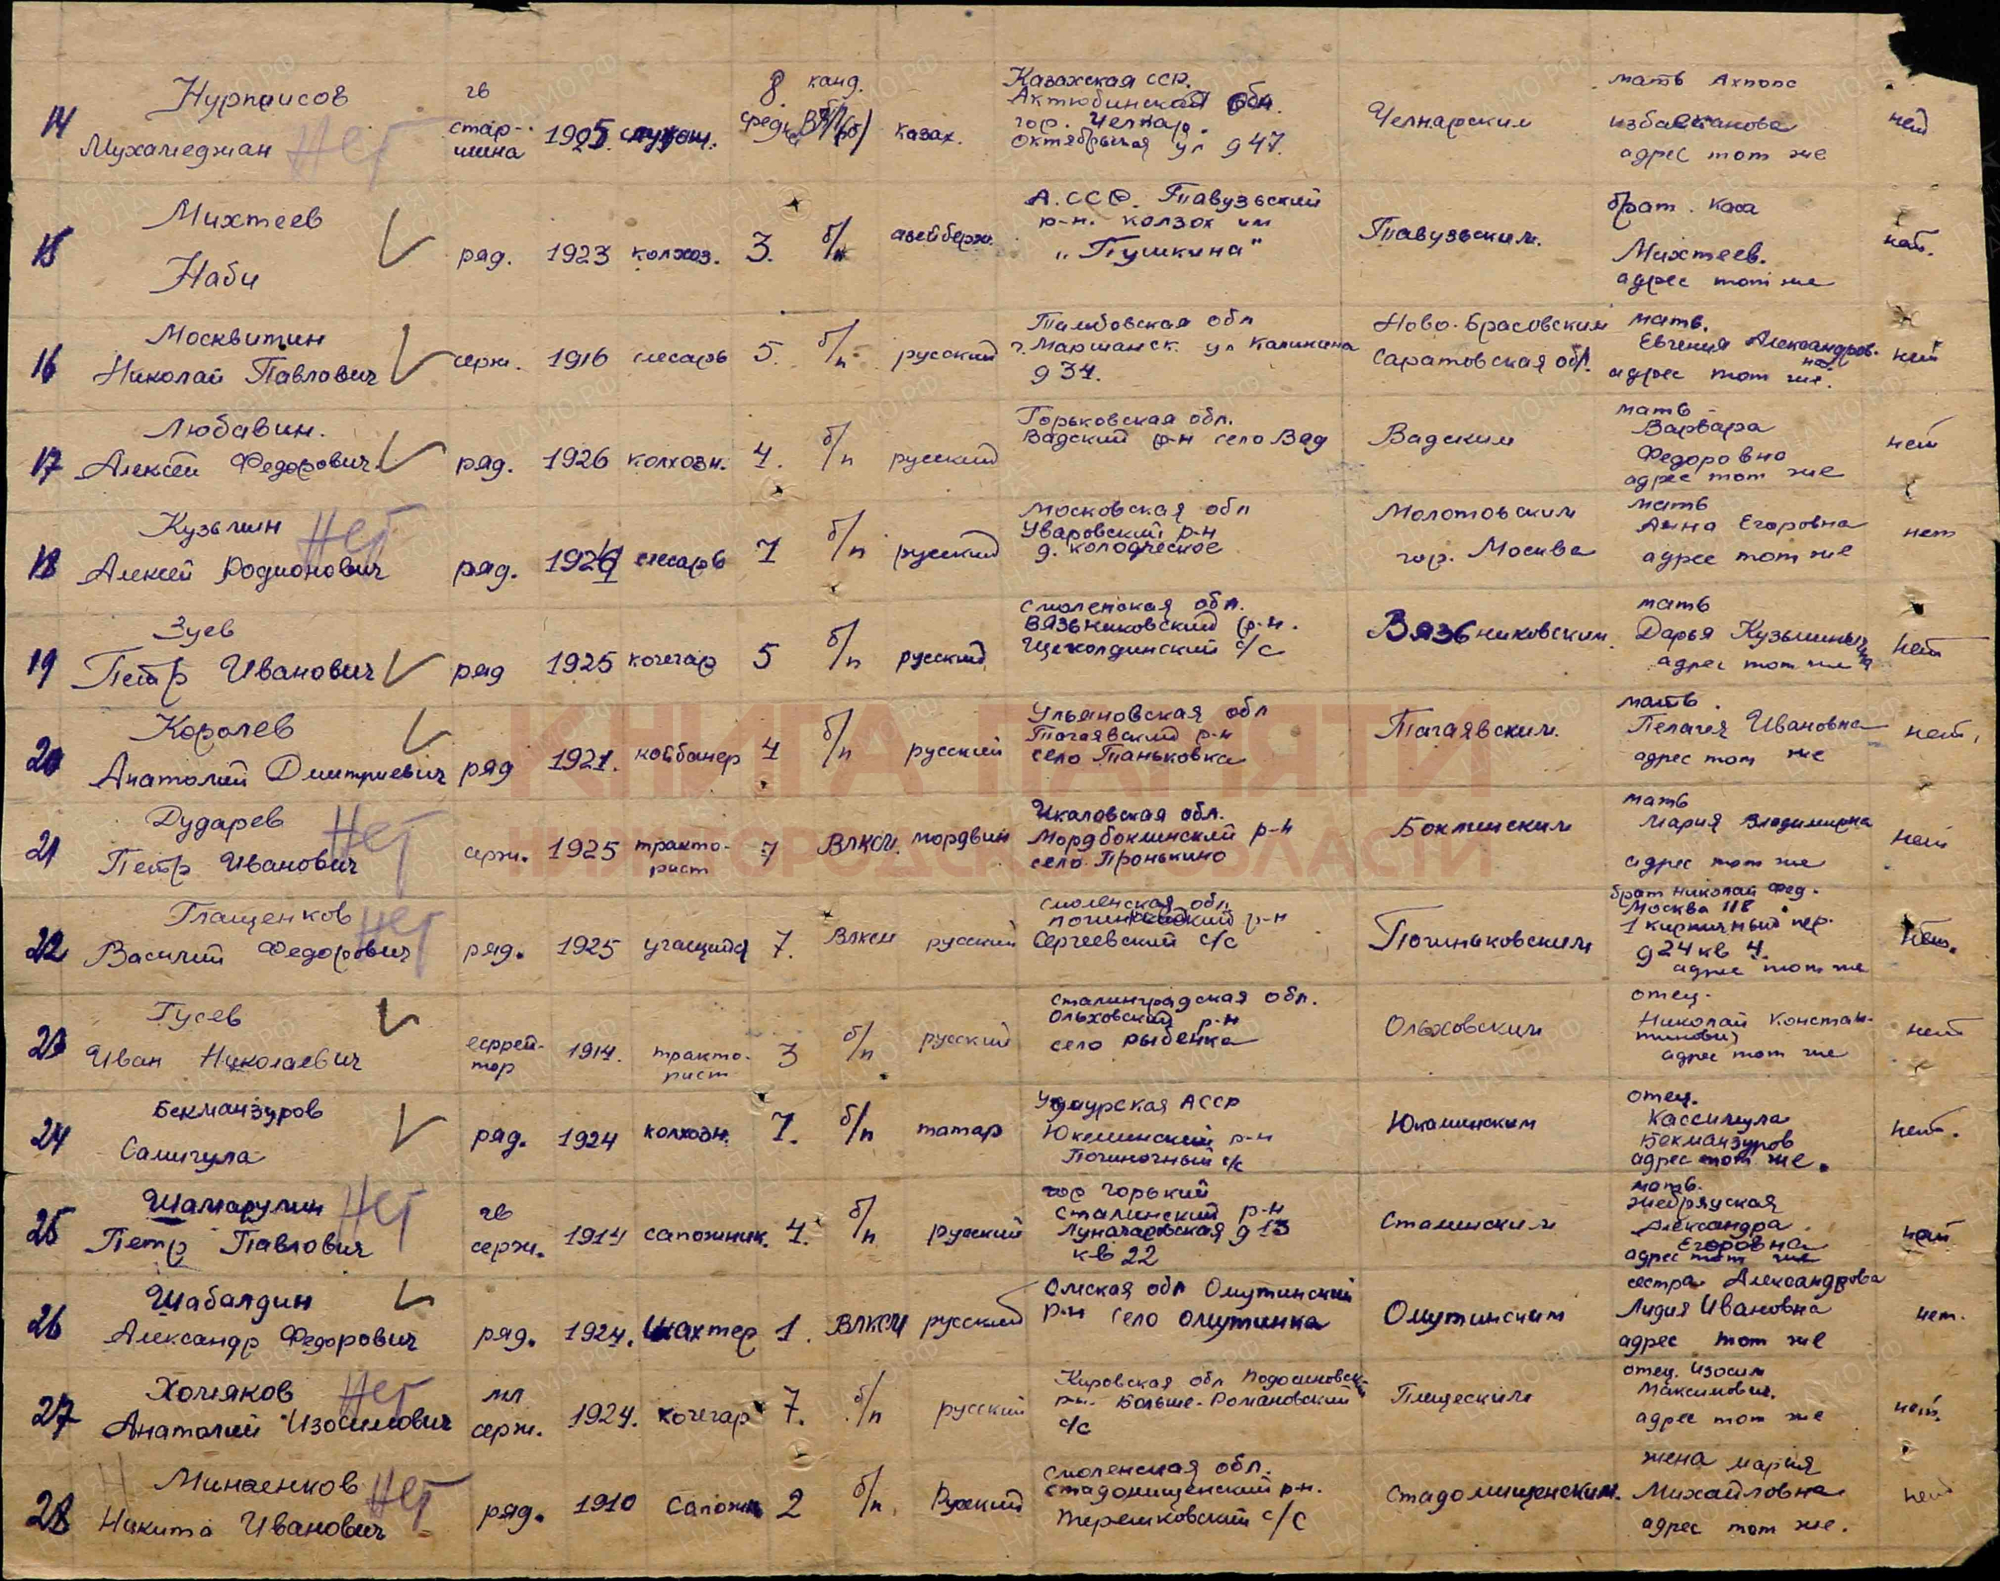 14 Нурпаисов Мухамеджан Нет гв старшина 1925. служащ. 8 средн. канд. ВКП(б) казах. Казахская ССР. Актюбинской обл. гор. Челкар. Октябрьская ул д 47. Челкарским мать адрес тот же нет
15 Михтеев Наби ряд. 1923 колхоз. 3. б/п азейберж. А.ССР. Тавузьский р-н. колзох им „Пушкина" Тавузьским. брат. Каса Михтеев. адрес тот же нет.
16 Москвитин Николай Павлович серж. 1916 слесарь 5. б/п русский Тамбовская обл г. Маршанск. ул Калинина д 34. Ново-Брасовским Саратовская обл. мать. Евгения Александровна адрес тот же. нет
17 Любавин. Алексей Федорович ряд. 1926 колхозн. 4. б/п русский Горьковская обл. Вадский р-н село Вад Вадским мать Варвара Федоровна адрес тот же нет
18 Кузьмин Алексей Родионович Нет ряд. слесарь 7 б/п русский Московская обл Уваровский р-н д. Молотовским гор. Москва мать Анна Егоровна адрес тот же нет
19 Зуев Петр Иванович ряд 1925 кочегар 5 б/п русский Смоленская обл. Вязьниковский р-н. Щеколдинский с/с Вязьниковским. мать Дарья адрес тот же нет
20 Королев Анатолий Дмитриевич ряд 1921. 4 б/п русский Ульяновская обл Тагаявский р-н село Таньковка Тагаявским. мать. Пелагея Ивановна адрес тот же нет.
21 Дударев Петр Иванович Нет серж. 1925 тракто- рист 7 ВЛКСМ. мордвин Чкаловская обл. Мордбоклинский р-н село Пронькино Боклинским мать Мария Владимирна адрес тот же нет
22 Глащенков Василий Федорович Нет ряд. 1925 учащийся 7. ВЛКСМ русский Смоленская обл. р-н Сергеевский с/с Починьковским брат Николай Фед. Москва 118 1 кирпичный пер. д 24 кв 4. адрес тот же нет.
23 Гусев Иван Николаевич ефрей- тор 1914. тракто- рист 3 б/п русский Сталинградская обл. Ольховский р-н село Рыбенка Ольховским отец. Николай Констан- тинович адрес тот же нет
24 Бекманзуров Самигула ряд. 1924 колхозн. 7. б/п татар Удмурская АССР Юкаминский р-н Починочный с/с Юкаминским отец. Кассимула Бекманзуров адрес тот же. нет.
25 Шамарулин Петр Павлович Нет гв серж. 1914 сапожник. 4. б/п русский гор Горький Сталинский р-н Луначаровская д 13 кв 22 Сталинским мать. Александра Егоровна адрес тот же нет
26 Шабалдин Александр Федорович ряд. 1924. Шахтер 1. ВЛКСМ русский Омская обл Омутинский р-н село Омутинка Омутинским сестра Александрова Лидия Ивановна адрес тот же нет.
27 Хомяков Анатолий Изосимович Нет мл серж. 1924. кочегар 7. б/п русский Кировская обл Подосиновск. р-н. Больше-Романовский с/с отец. Изосим Максимович. адрес тот же нет.
28 Минаенков Никита Иванович Нет ряд. 1910 Сапожн 2 б/п. Русский Смоленская обл. стадомищенский р-н. Терешковский с/с Стадомищенским. жена Мария Михайловна адрес тот же. нет
КНИГА ПАМЯТИ
НИЖЕГОРОДСКОЙ ОБЛАСТИ